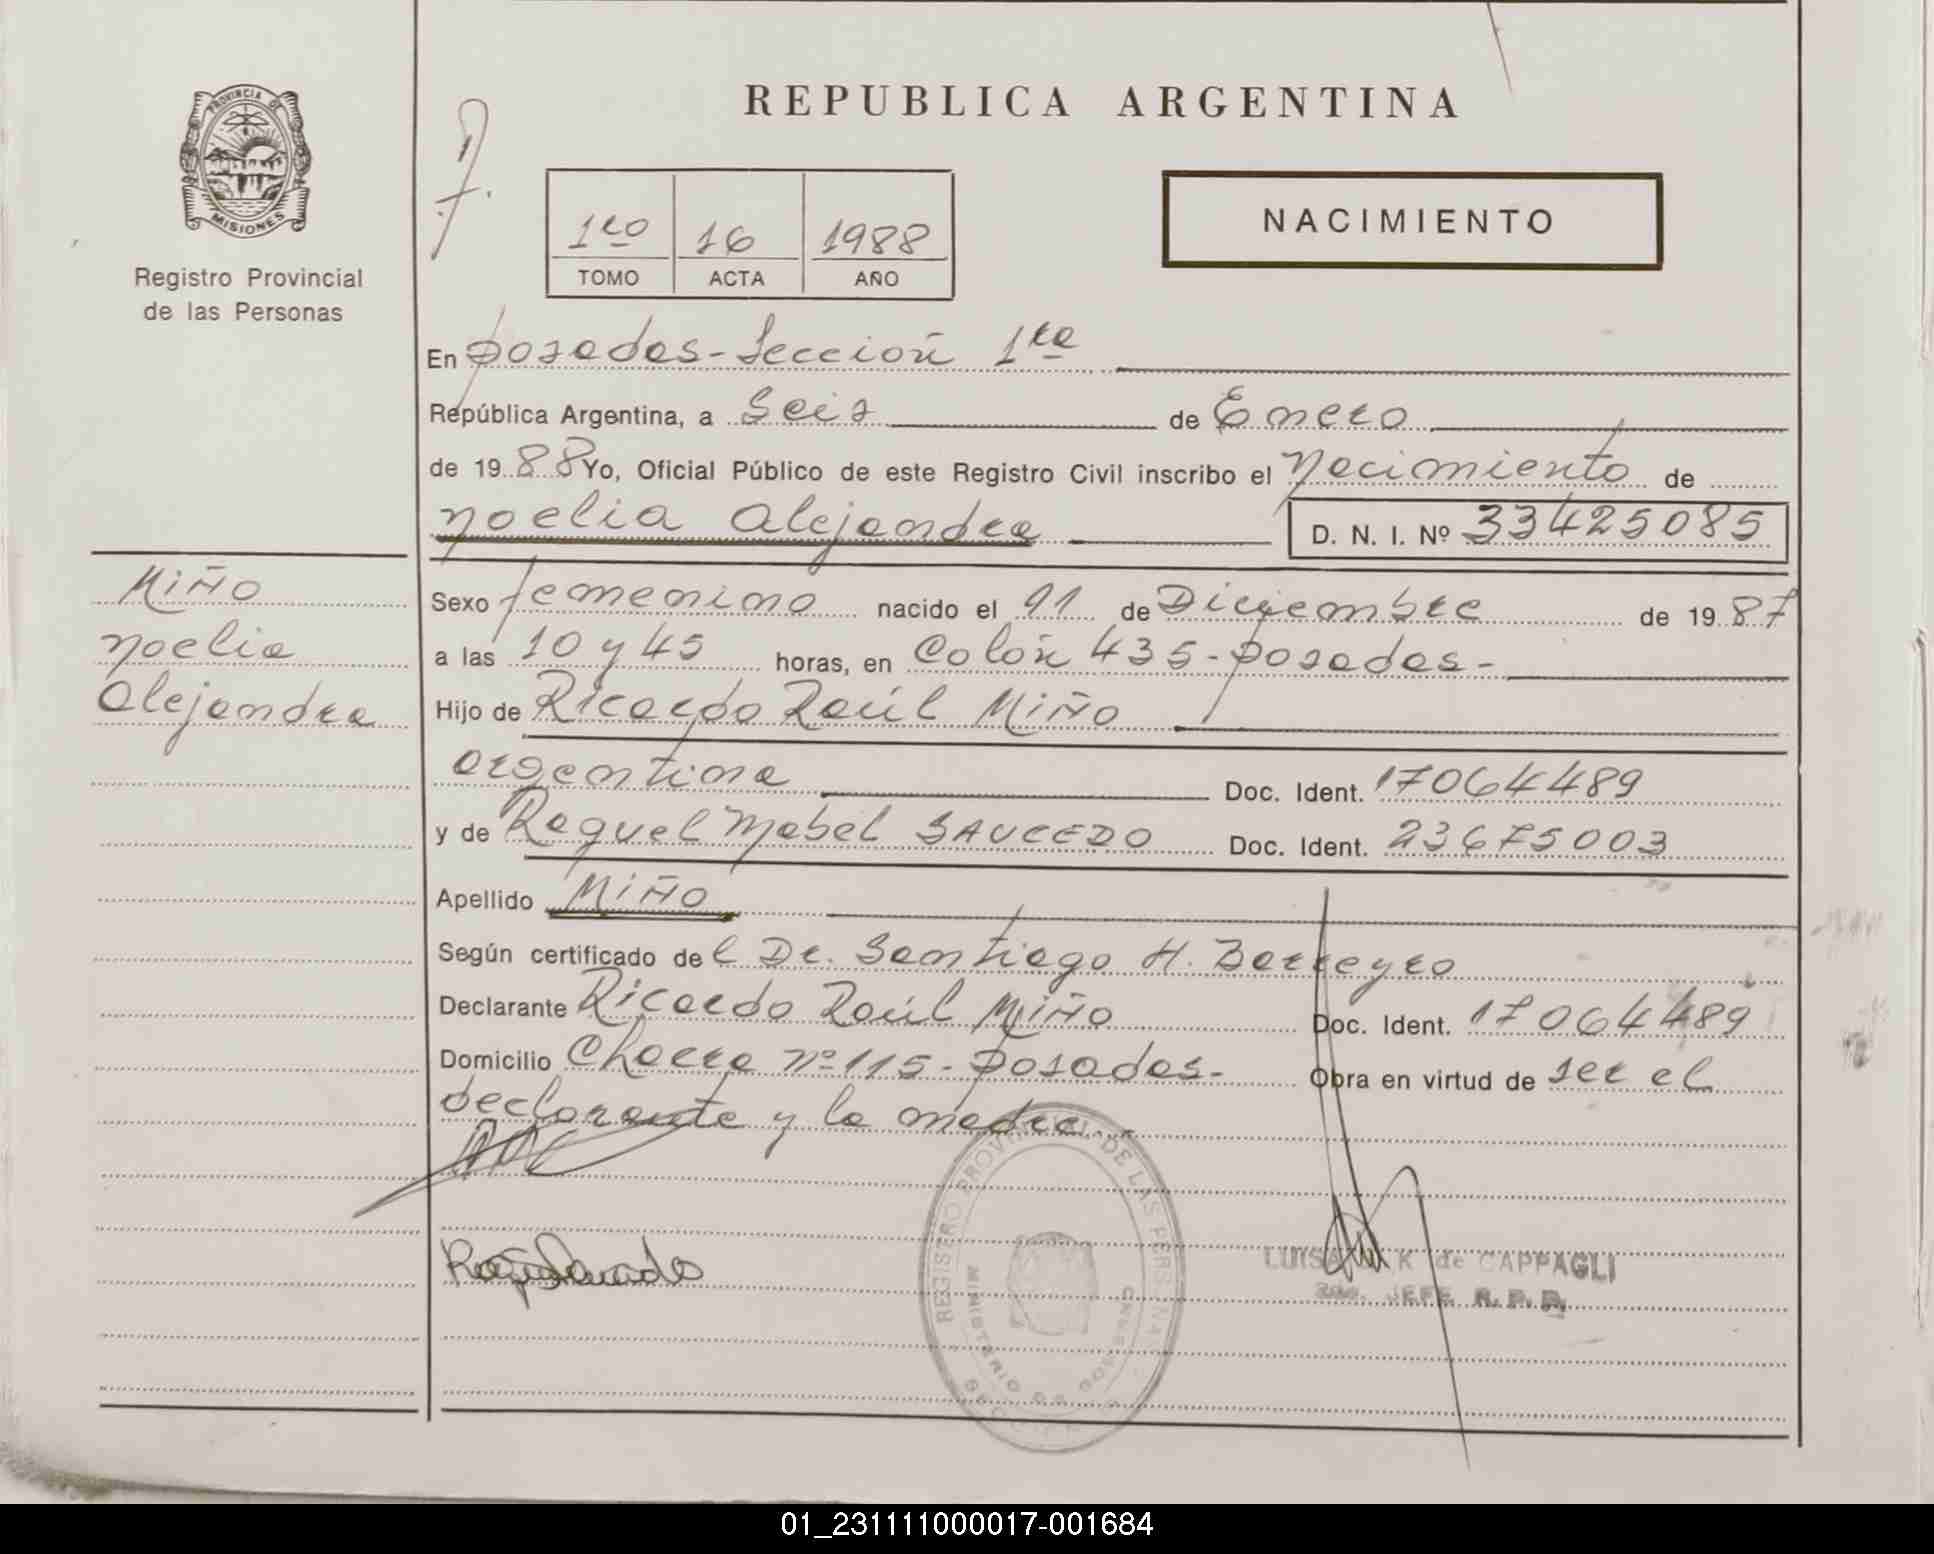 REPUBLICA ARGENTINA
PROVINCIA DE
MISIONES
Registro Provincial
de las Personas
1ro 16 1988
TOMO ACTA AÑO
NACIMIENTO
En Posadas-Sección 1ra
República Argentina, a Seis de Enero
de 1988 Yo, Oficial Público de este Registro Civil inscribo el Nacimiento de
Noelia Alejandra D. N. I. Nº 33425085
MIÑO
Noelia
Alejandra
Sexo femenino nacido el 11 de Diciembre de 1987
a las 10 y 45 horas, en Colón 435-Posadas-
Hijo de Ricardo Raúl MIÑO
argentina Doc. Ident. 17064489
y de Raquel Mabel SAUCEDO Doc. Ident. 23675003
Apellido MIÑO
Según certificado del Dr. Santiago H. Barreyro
Declarante Ricardo Raúl MIÑO Doc. Ident. 17064489
Domicilio Chacra nº 115-Posadas- Obra en virtud de ser el
declarante y la madre.-
REGISTRO PROVINCIAL DE LAS PERSONAS
MINISTERIO DE GOBIERNO
LUISA K de CAPPAGLI
JEFE R.P.P.
01_231111000017-001684